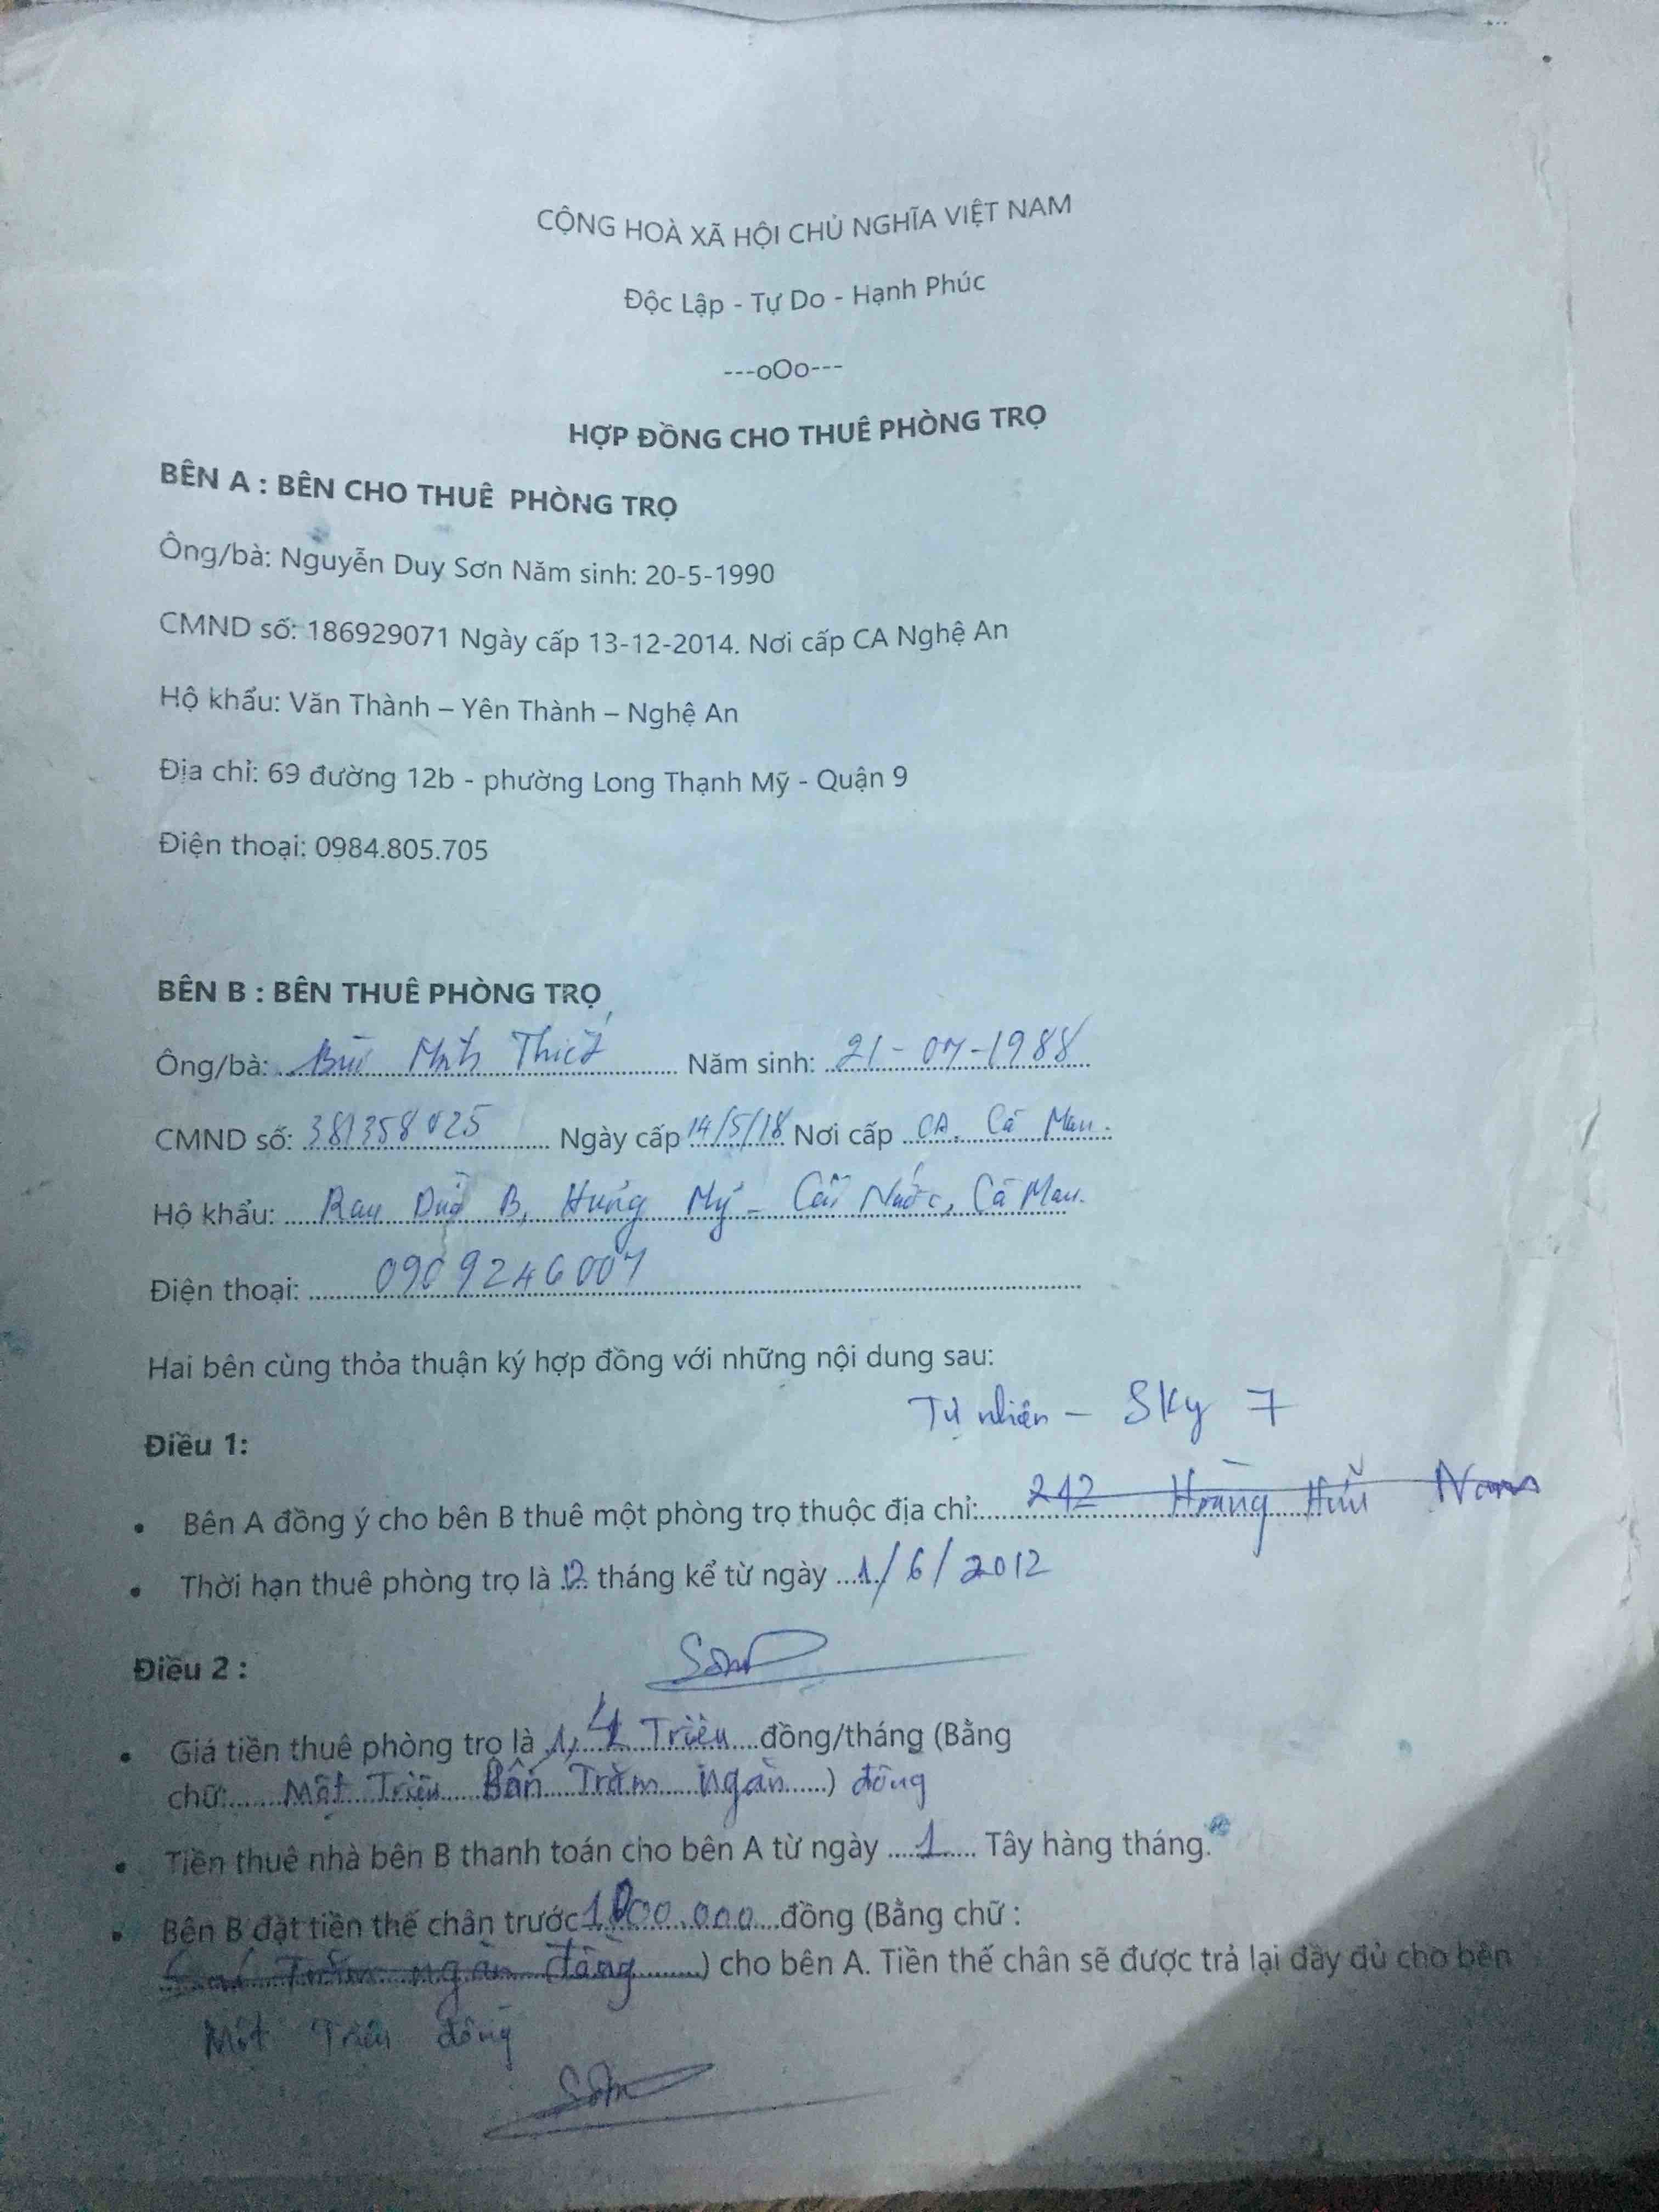 CỘNG HOÀ XÃ HỘI CHỦ NGHĨA VIỆT NAM
Độc Lập - Tự Do - Hạnh Phúc
---oOo---
HỢP ĐỒNG CHO THUÊ PHÒNG TRỌ
BÊN A : BÊN CHO THUÊ PHÒNG TRỌ
Ông/bà: Nguyễn Duy Sơn Năm sinh: 20-5-1990
CMND số: 186929071 Ngày cấp 13-12-2014. Nơi cấp CA Nghệ An
Hộ khẩu: Văn Thành – Yên Thành – Nghệ An
Địa chỉ: 69 đường 12b - phường Long Thạnh Mỹ - Quận 9
Điện thoại: 0984.805.705
BÊN B : BÊN THUÊ PHÒNG TRỌ
Ông/bà: Bùi Minh Thiết Năm sinh: 21-07-1988
CMND số: 381358025 Ngày cấp 14/5/18 Nơi cấp CA. Cà Mau.
Hộ khẩu: Rau Dừa B, Hưng Mỹ - Cái Nước, Cà Mau.
Điện thoại: 0909246007
Hai bên cùng thỏa thuận ký hợp đồng với những nội dung sau:
Tự nhiên - Sky 7
Điều 1:
• Bên A đồng ý cho bên B thuê một phòng trọ thuộc địa chỉ: 242 Hoàng Hữu Nam
• Thời hạn thuê phòng trọ là 12 tháng kể từ ngày 1/6/2012
Sơn
Điều 2 :
• Giá tiền thuê phòng trọ là 1,4 Triệu đồng/tháng (Bằng
chữ: Một Triệu Bốn Trăm ngàn) đồng
• Tiền thuê nhà bên B thanh toán cho bên A từ ngày 1 Tây hàng tháng.
• Bên B đặt tiền thế chân trước 1000.000 đồng (Bằng chữ :
Trăm ngàn đồng) cho bên A. Tiền thế chân sẽ được trả lại đầy đủ cho bên
Một Triệu đồng
Sơn